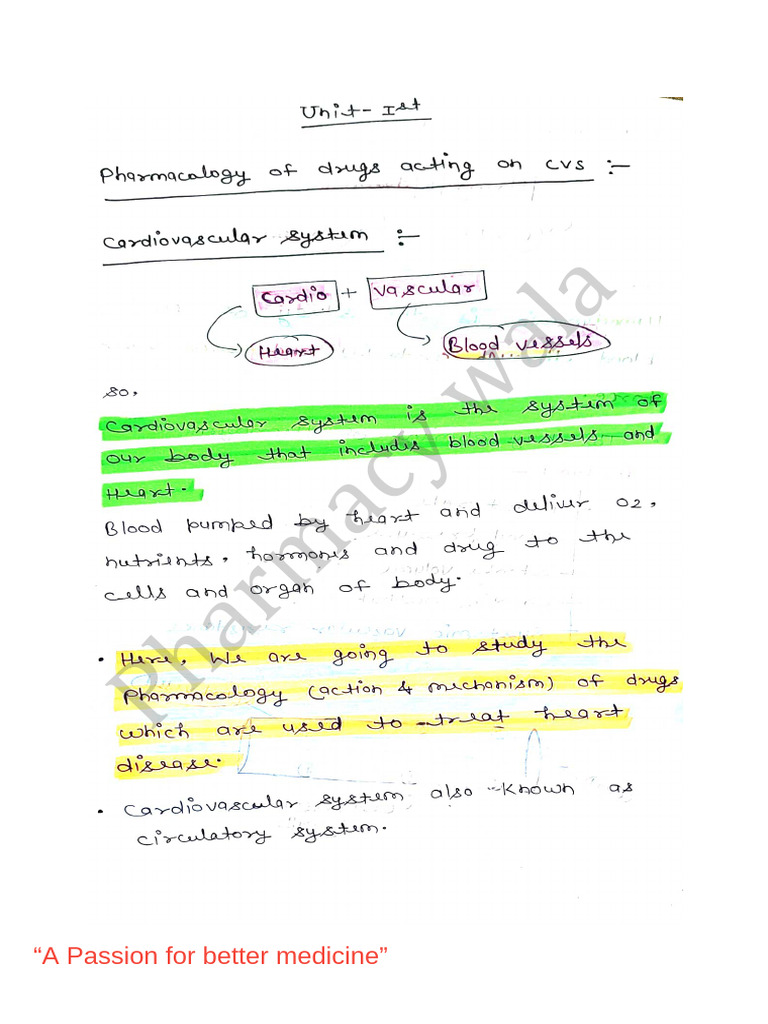 Unit - Ist
Pharmacology of drugs acting on CVS :-
Cardiovascular system :-
Cardio + Vascular
Heart Blood vessels
so,
Cardiovascular system is the system of
our body that includes blood vessels and
Heart.
Blood pumped by heart and deliver O2,
nutrients, hormones and drug to the
cells and organ of body.
• Here, We are going to study the
pharmacology (action & mechanism) of drugs
which are used to treat heart
disease.
• Cardiovascular system also known as
circulatory system.
Pharmacy wala
“A Passion for better medicine”